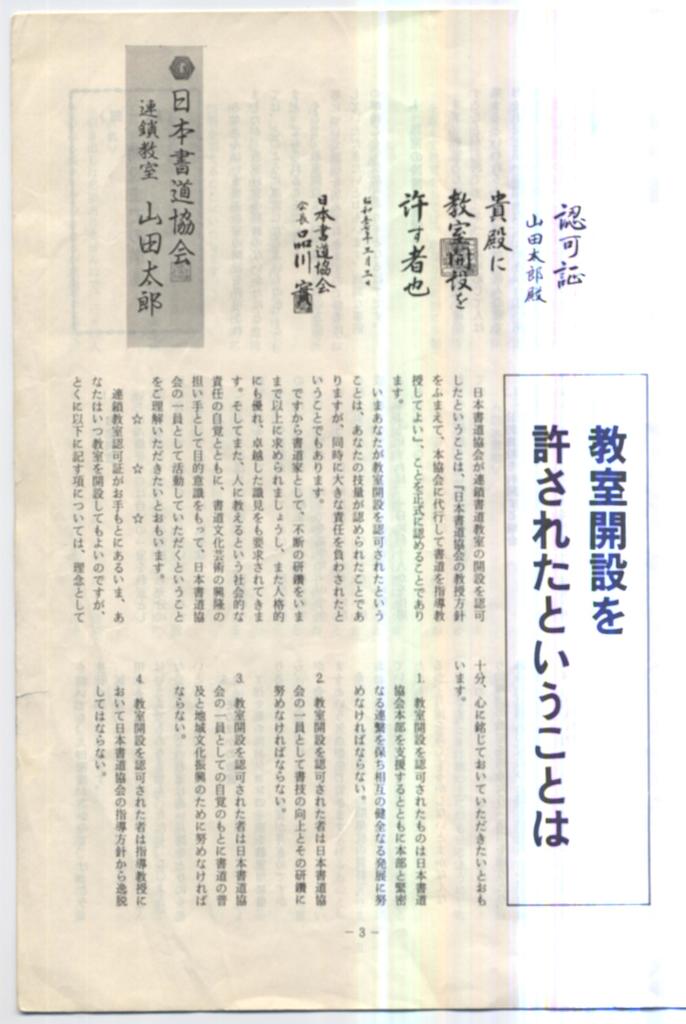 教室開設を
許されたということは
認可証
山田太郎殿
貴殿に
教室開設を
許す者也
日本書道協会
会長 品川
日本書道協会
連鎖教室 山田太郎
日本書道協会が連鎖書道教室の開設を認可
したということは、『日本書道協会の教授方針
をふまえて、本協会に代行して書道を指導教
授してよい』、ことを正式に認めることであり
ます。
いまあなたが教室開設を認可されたという
ことは、あなたの技量が認められたことであ
りますが、同時に大きな責任を負わされたと
いうことでもあります。
ですから書道家として、不断の研鑽をいま
まで以上に求められましょうし、また人格的
にも優れ、卓越した識見をも要求されてきま
す。そしてまた、人に教えるという社会的な
責任の自覚とともに、書道文化芸術の興隆の
担い手として目的意識をもって、日本書道協
会の一員として活動していただくということ
をご理解いただきたいとおもいます。
☆ ☆ ☆
連鎖教室認可証がお手もとにあるいま、あ
なたはいつ教室を開設してもよいのですが、
とくに以下に記す項については、理念として
十分、心に銘じておいていただきたいとおも
います。
1. 教室開設を認可されたものは日本書道
協会本部を支援するとともに本部と緊密
なる連繫を保ち相互の健全なる発展に努
めなければならない。
2. 教室開設を認可された者は日本書道協
会の一員として書技の向上とその研鑽に
努めなければならない。
3. 教室開設を認可された者は日本書道協
会の一員としての自覚のもとに書道の普
及と地域文化振興のために努めなければ
ならない。
4. 教室開設を認可された者は指導教授に
おいて日本書道協会の指導方針から逸脱
してはならない。
－3－